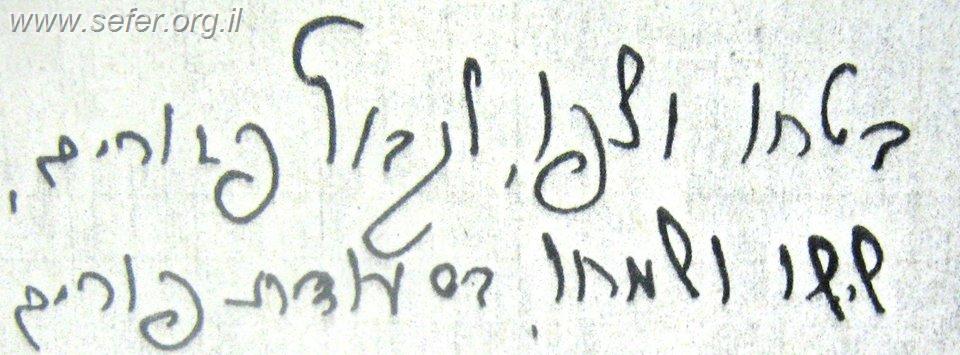 www.sefer.org.il
בטחו וצפו, לגבול פזורים,
שישו ושמחו בסעודת פורים